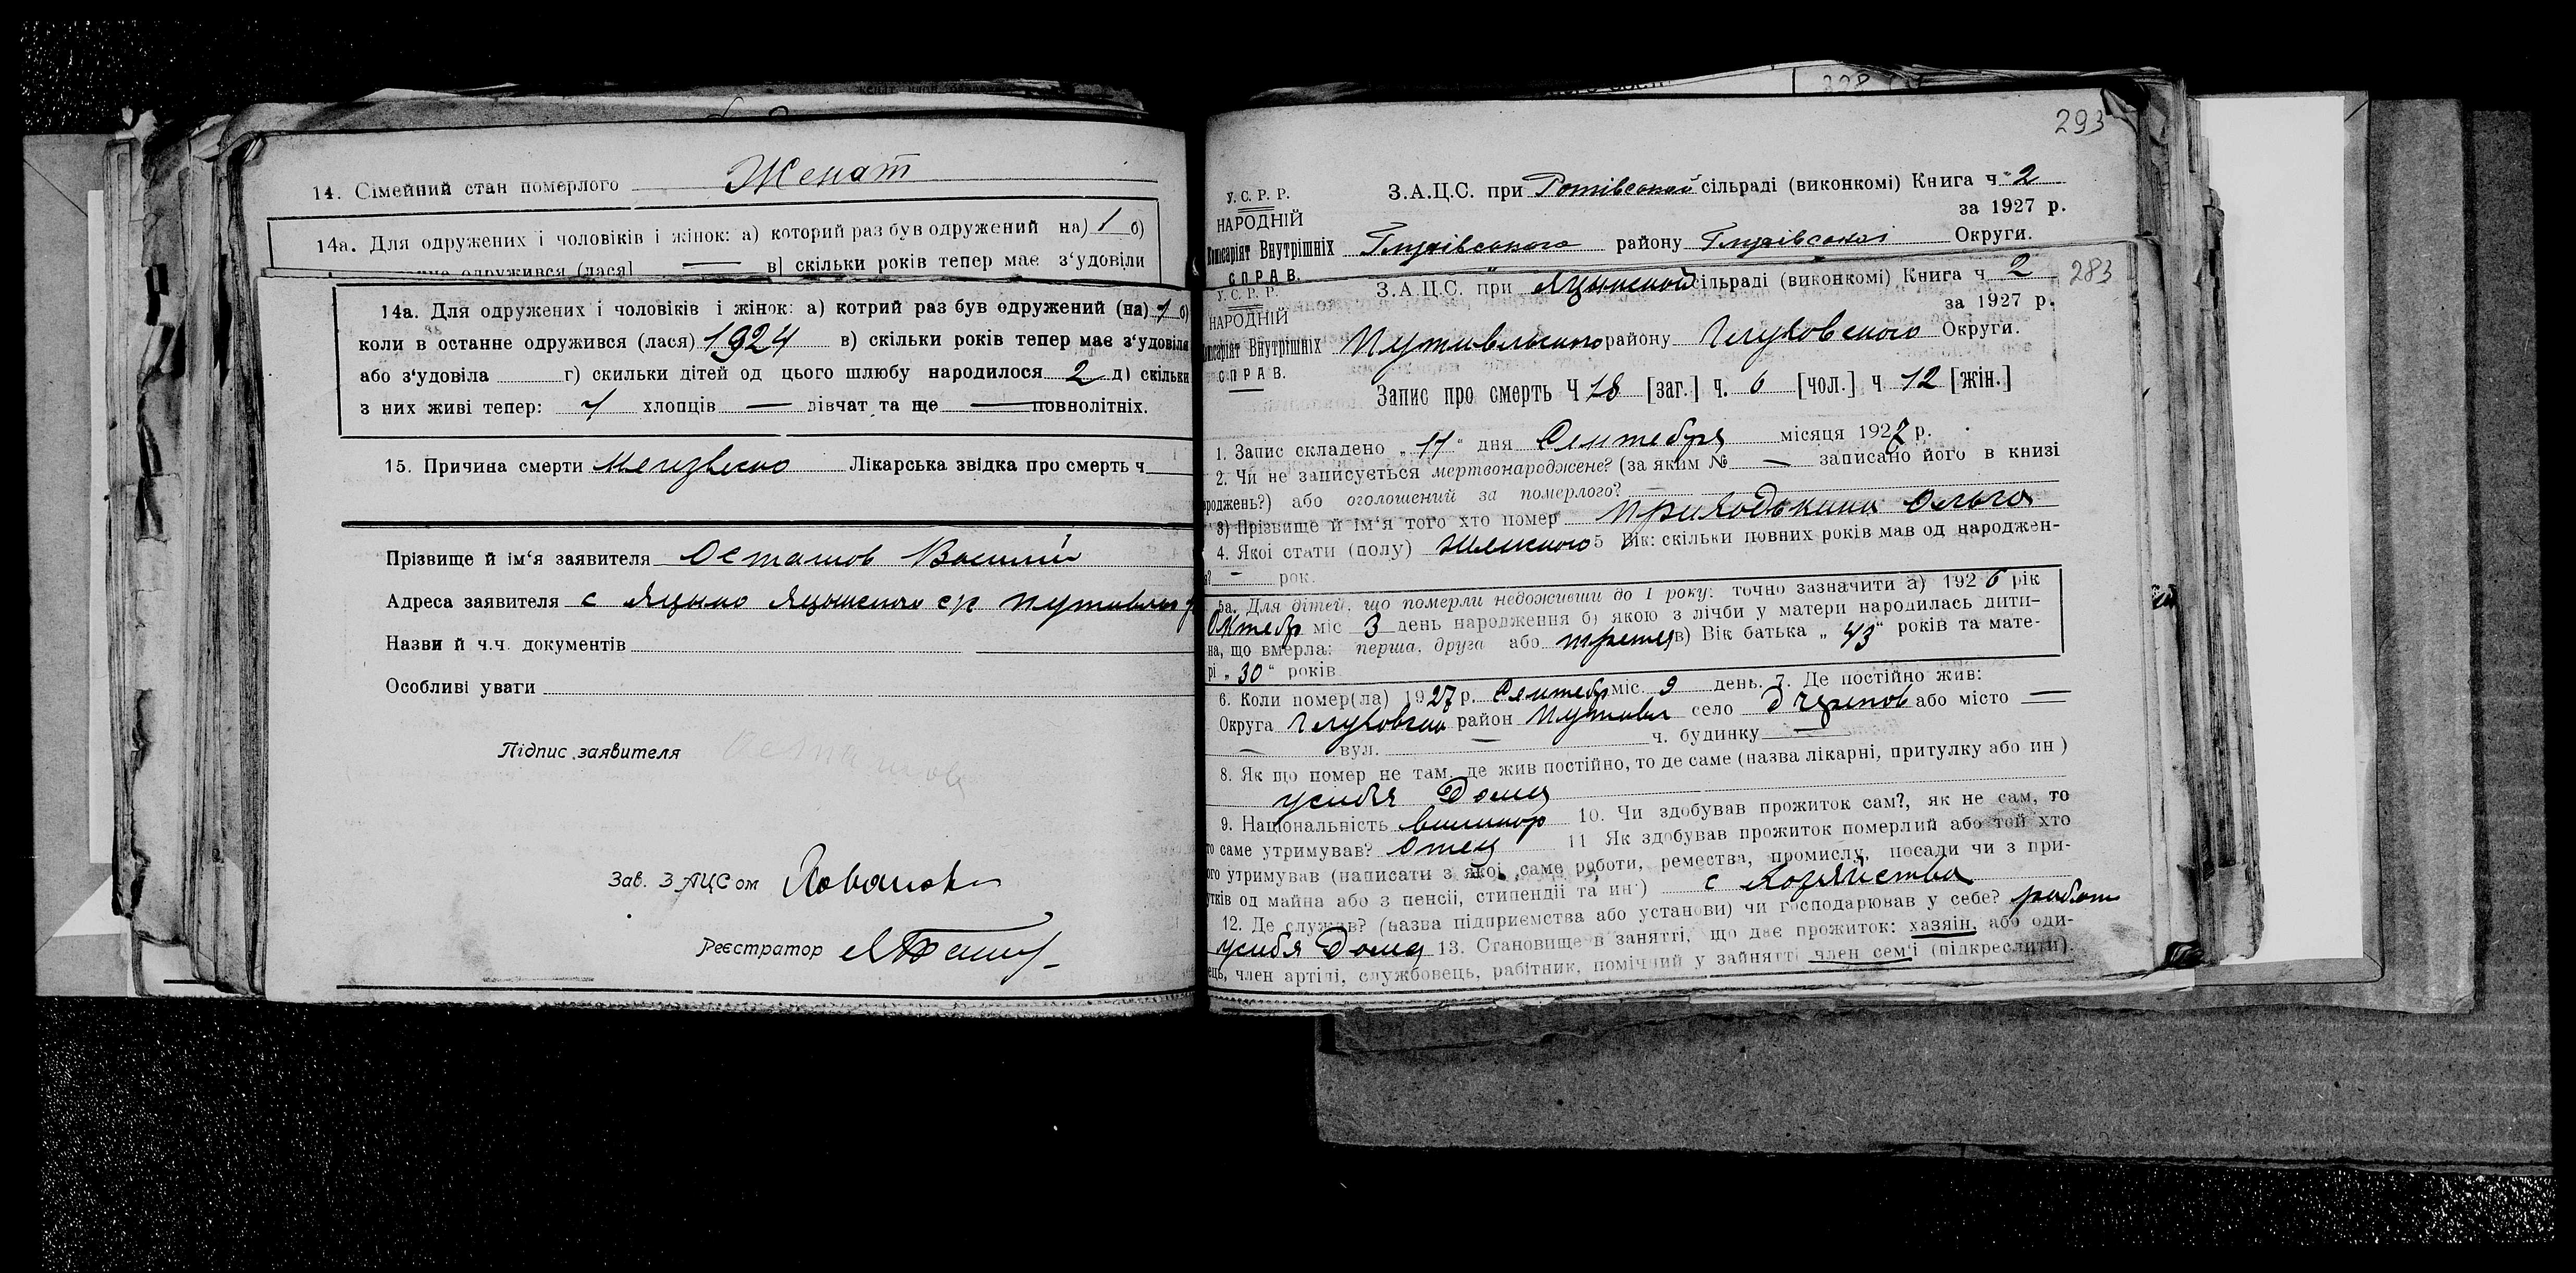 14. Сімейний стан померлого Женат
14а. Для одружених і чоловіків і жінок: а) которий раз був одружений на) 1 б)
одружився (лася) — в] скільки років тепер має з'удовіли
14а. Для одружених і чоловіків і жінок: а) котрий раз був одружений (на) 1 б)
коли в останне одружився (лася) 1924 в) скільки років тепер має з'удовіла
або з'удовіла г) скильки дітей од цього шлюбу народилося 2 д) скільки
з них живі тепер: 1 хлопців — дівчат та ще — повнолітніх.
15. Причина смерти Лікарська звідка про смерть ч
Прізвище й ім'я заявителя Осташов Василий
Адреса заявителя с Яцыно Яцынского с/с Путивльск р
Назви й ч.ч. документів
Особливі уваги
Підпис заявителя
Зав. ЗАЦСом
Реєстратор
293
У.С.Р.Р. З.А.Ц.С. при сільраді (виконкомі) Книга ч. 2
НАРОДНІЙ за 1927 р.
Комісаріят Внутрішніх Глухівського району Глухівської Округи.
СПРАВ.
У.С.Р.Р. З.А.Ц.С. при Яцынской сільраді (виконкомі) Книга ч 2 283
НАРОДНІЙ за 1927 р.
Комісаріят Внутрішніх Путивльского району Глуховского Округи.
СПРАВ.
Запис про смерть Ч 18 [заг.] ч. 6 [чол.] ч 12 [жін.]
1. Запис складено „11" дня Сентебря місяця 1927 р.
2. Чи не записується мертвонароджене? (за яким № — записано його в книзі
роджень?) або оголошений за померлого? —
3) Прізвище й ім'я того хто помер Приходькина Ольга
4. Якої стати (полу) женского 5 Вік: скільки повних років мав од народжен-
я? — рок.
5а. Для дітей, що померли недоживши до 1 року: точно зазначити а) 1926 рік
Октебр міс 3 день народження б) якою з лічби у матери народилась дити-
на, що вмерла: перша, друга або третея в) Вік батька „43" років та мате-
рі „30" років
6. Коли помер(ла) 1927 р. Сентебр міс. 9 день. 7. Де постійно жив:
Округа Глуховская район Путивл село або місто —
— вул. — ч. будинку —
8. Як що помер не там, де жив постійно, то де саме (назва лікарні, притулку або ин)
усибя Дома
9. Національність 10. Чи здобував прожиток сам?, як не сам, то
то саме утримував? Отец 11 Як здобував прожиток померлий або той хто
ого утримував (написати з якої саме роботи, ремества, промислу, посади чи з при-
утків од майна або з пенсії, стипендії та ин.) с хозяйства
12. Де служив? (назва підприємства або установи) чи господарював у себе? работ
усибя Дома 13. Становище в занятті, що дає прожиток: хазяїн, або оди-
ець, член артілі, службовець, рабітник, помічний у зайнятті член сем'ї (підкреслити).